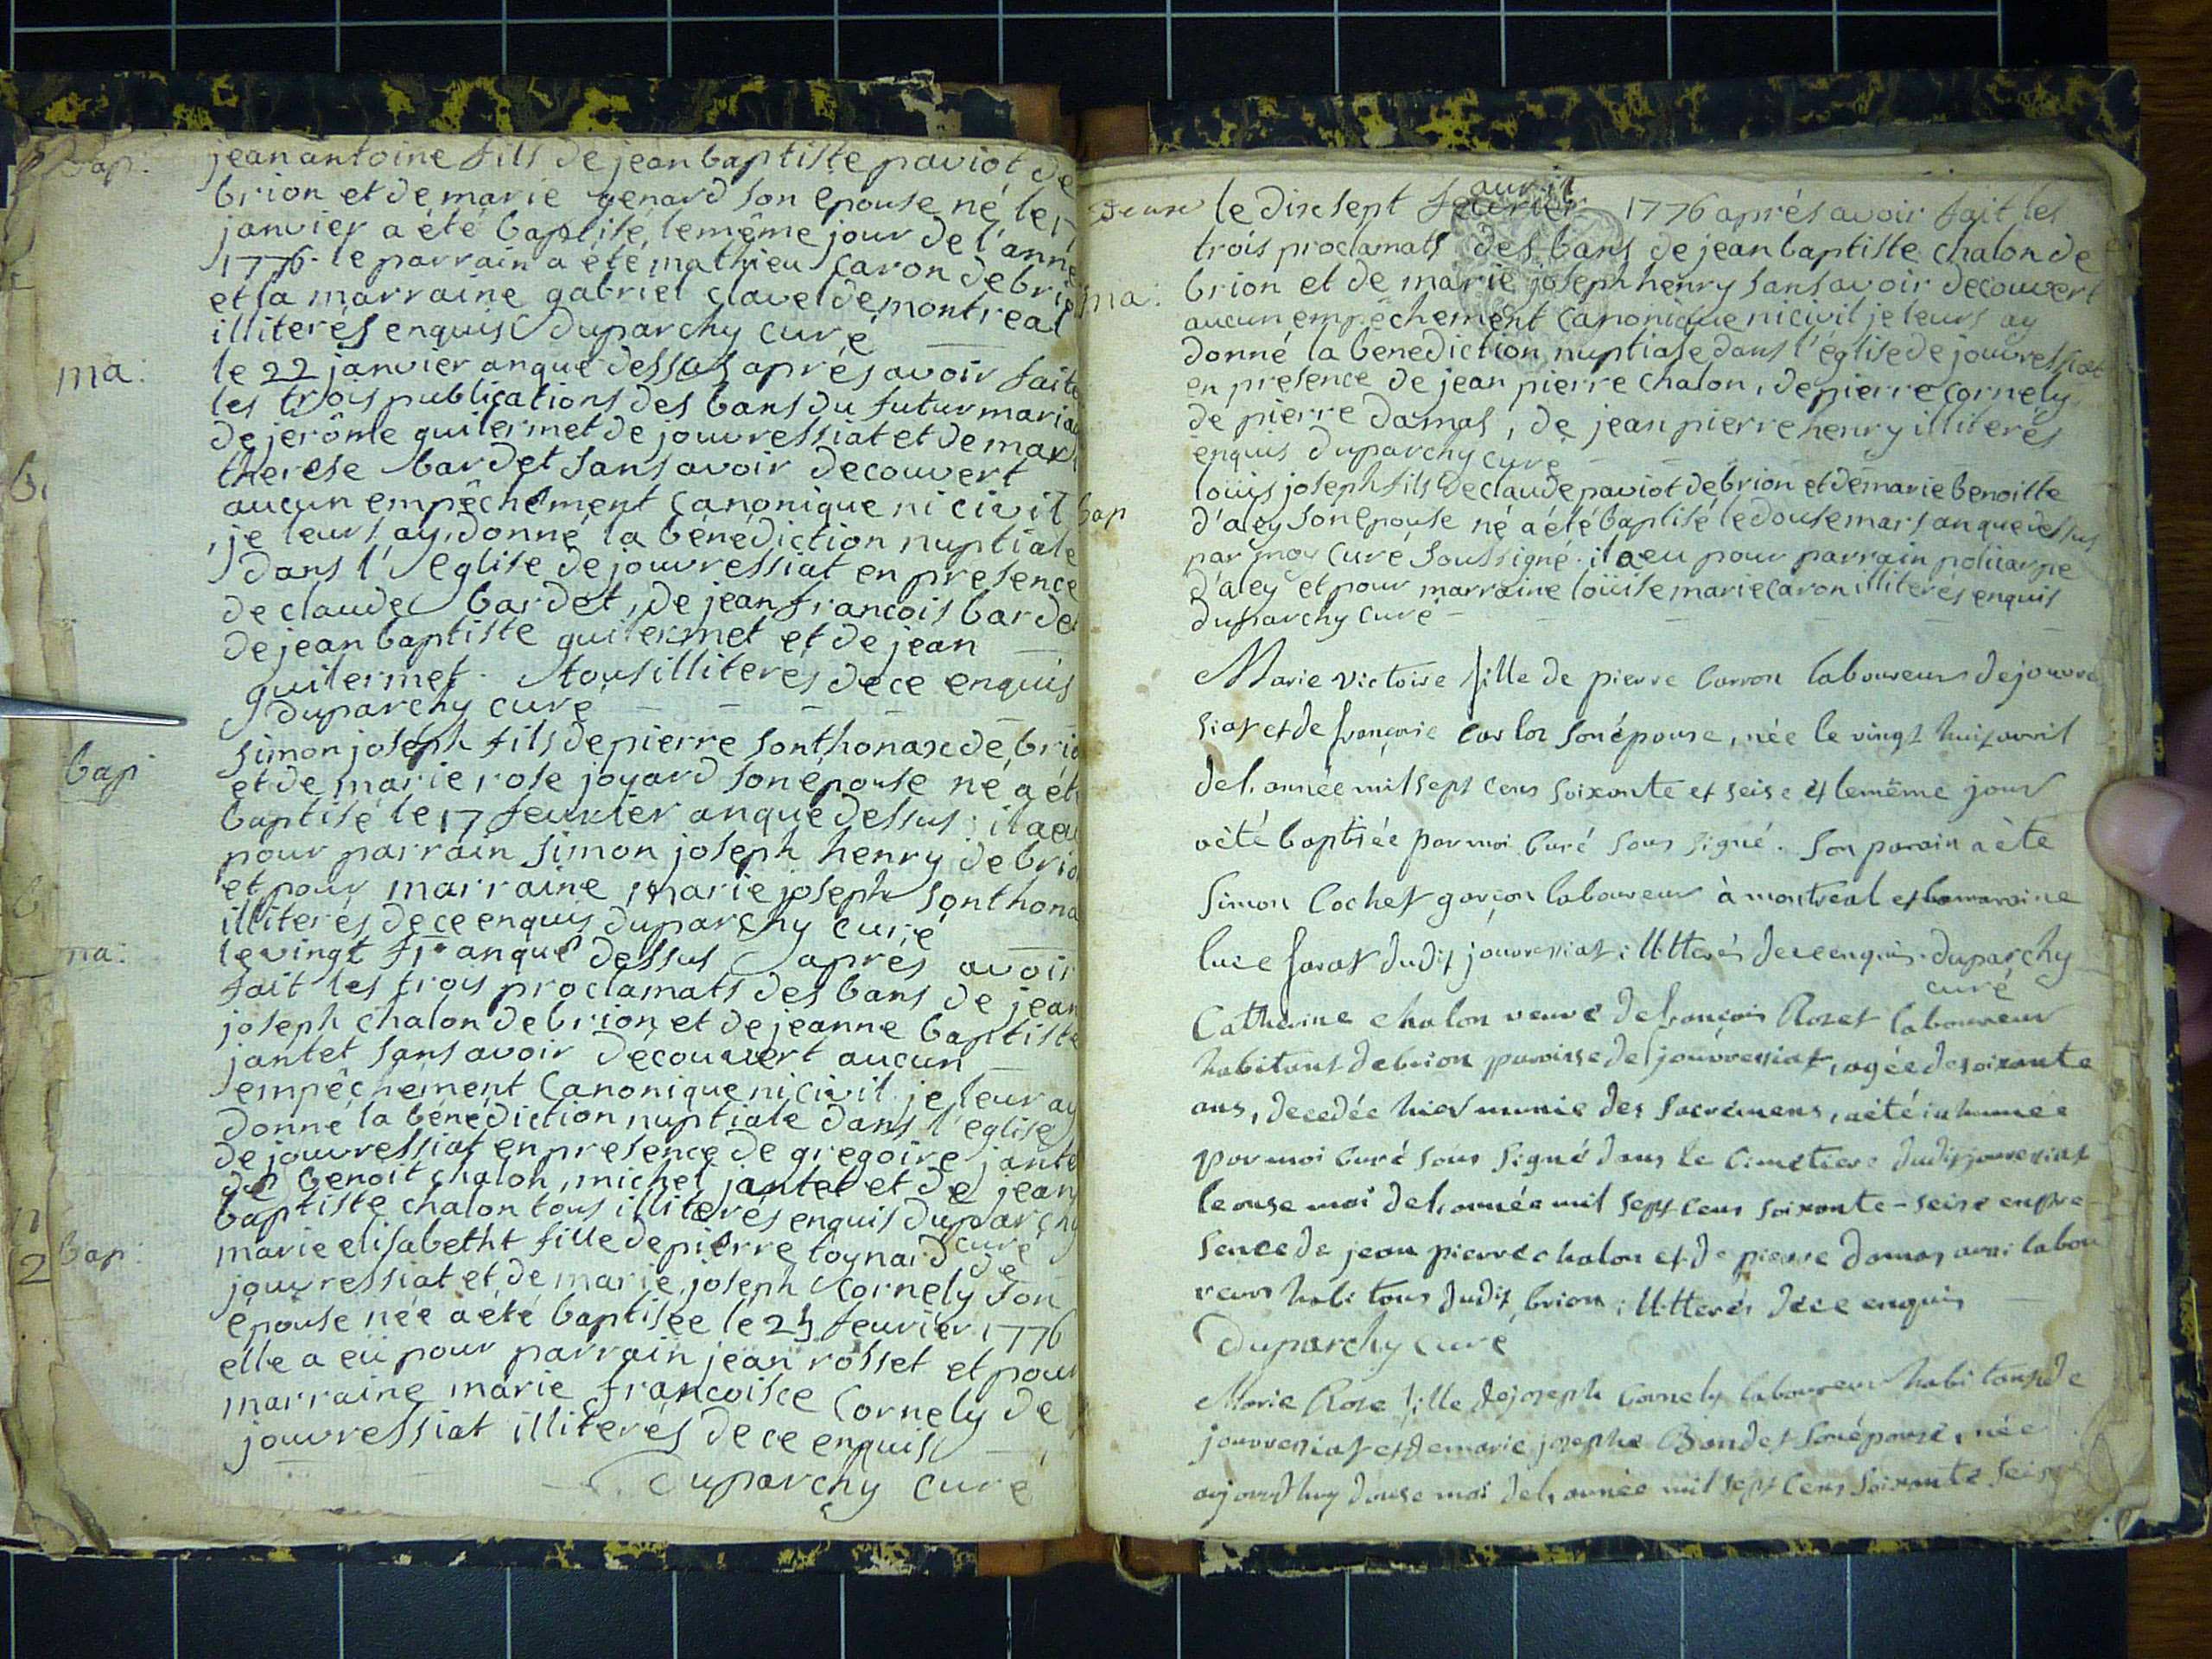 bap: jean antoine fils de jean baptiste paviot de
brion et de marie genard son epouse né le 17
janvier a été baptisé le même jour de l'anné
1776. le parrain a été mathieu caron de brio
et la marraine gabriel clavel de montreal
illiterés enquis duparchy curé
ma: le 22 janvier an que dessus aprés avoir faite
les trois publications des bans du futur maria
de jerôme guilermet de jouvressiat et de mar
therese bardet sans avoir decouvert
aucun empêchement canonique ni civil
je leurs ay donné la bénédiction nuptiale
dans l'eglise de jouvressiat en presence
de claude bardet, de jean francois barde
de jean baptiste guilermet et de jean
guilermet. tous illiterés de ce enquis
duparchy curé
bap simon joseph fils de pierre sonthonax de brio
et de marie rose joyard son épouse né a été
baptisé le 17 feuvrier an que dessus: il a eu
pour parrain simon joseph henry de brio
et pour marraine marie joseph sonthona
illiterés de ce enquis duparchy curé
ma: le vingt fr an que dessus aprés avoir
fait les trois proclamats des bans de jean
joseph chalon de brion et de jeanne baptiste
jantet sans avoir découvert aucun
empêchement canonique ni civil je leur ay
donné la bénédiction nuptiale dans l'eglise
de jouvressiat en presence de gregoire jante
de benoit chalon, michel jantet et de jean
baptiste chalon tous illiterés enquis duparchy
curé
bap: marie elisabetht fille de pierre toynard de
jouvressiat et de marie joseph cornely son
épouse née a été baptisée le 24 feuvrier 1776
elle a eü pour parrain jean rosset et pour
marraine marie francoisce cornely de
jouvressiat illiterés de ce enquis
duparchy curé
avril
deuxe le dixsept feuvrier 1776 aprés avoir fait les
trois proclamats des bans de jean baptiste chalon de
ma: brion et de marie joseph henry sans avoir decouvert
aucun empêchement canonique ni civil je leurs ay
donné la benediction nuptiale dans l'église de jouvressiat
en presence de jean pierre chalon, de pierre cornely
de pierre damas, de jean pierre henry illiterés
enquis duparchy curé
loüis joseph fils de claude paviot de brion et de marie benoitte
bap d'aley son epouse né a été baptisé le douse mars an que dessus
par moy curé soussigné. il a eu pour parrain policarpe
d'aley et pour marraine loüise marie caron illiterés enquis
duparchy curé
Marie victoire fille de pierre Carron laboureur de jouvre
siat et de françoise Carloz son épouse, née le vingt huit avril
de l'année mil sept cens soixante et seise et le même jour
a été baptisée par moi curé sous signé. Son parain a été
Simon Cochet garçon laboureur à montréal et la maraine
luce farat dudit jouvressiat illitterés de ce enquis. duparchy
curé
Catherine chalon veuve de françois Rozet laboureur
habitant de brion paroisse de jouvressiat, agée de soixante
ans, decedée hier munie des sacremens, a été inhumée
par moi curé sous signé dans le cimetiere dudit jouvressiat
le onse mai de l'année mil sept cens soixante-seise en pre
sence de jean pierre chalon et de pierre damas aussi labou
reurs habitans dudit brion illitterés de ce enquis
Duparchy curé
Marie Rose fille de joseph Cornely laboureur habitant de
jouvressiat et de marie josephe Bondet son épouse, née
aujourd'huy douse mai de l'année mil sept cens soixante seise